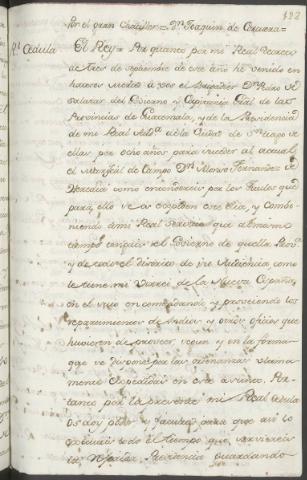 Por el gran Chanciller = Dn. Joaquin de
Rl. Cedula
El Rey = Por quanto por mi Real Decreto
de tres de septiembre de este año he venido en
haceros merced à vos el Brigadier Dn. Pedro de
Salazar del Govierno y Capitania Gral de las
Provincias de Guatemala, y de la Presidencia
de mi Real Auda. de la Ciudad de Santiago
ellas por ocho años para suceder al actual
el Mariscal de Campo Dn. Alonso Fernandez de
Heredia como entendereis por los Titulos que
para ello se os expiden este dia, y combi-
niendo à mi Real servicio que al mismo
tiempo empeis el Govierno de aquellas Prov.
y de todo el distrito de su Audiencia, como
le tiene mi Virrei de la Nueva España,
en el suyo encomendando, y proveiendo los
repartimientos de Indios y otros oficios que
huvieren de proveer, segun y en la forma
que se dispone por las ordenanzas ultima-
mente despachadas en este asunto. Por-
tanto por la presente mi Real Cedula
os doy poder y facultad para que asi lo
executeis todo el tiempo que sirvieseis
la Presidencia guardando